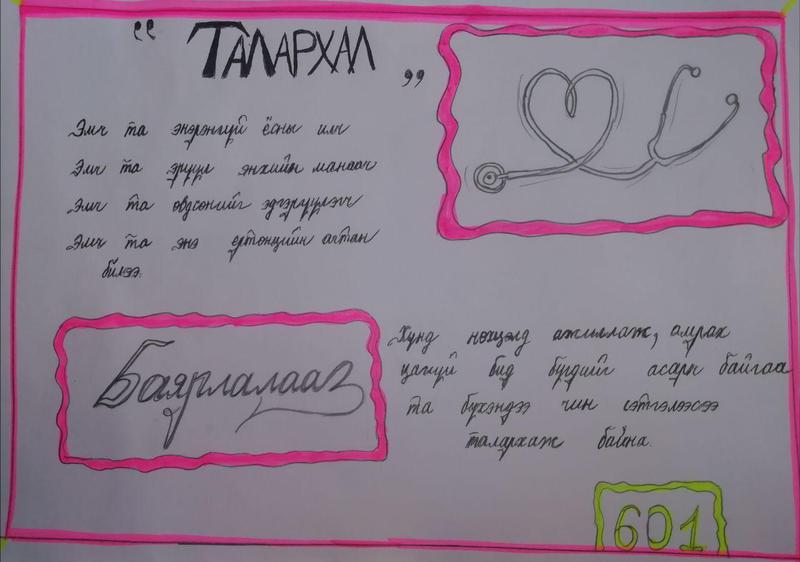 " ТАЛАРХАЛ "
Эмч та энэрэнгүй ёсны илч
Эмч та эрүүл энхийн манаач
Эмч та өвдсөнийг эдгэрүүлэгч
Эмч та энэ ертөнцийн ачтан
билээ.
Баярлалаа
Хүнд нөхцөлд ажиллаж, амрах
цагүй бид бүгдийг асарч байгаа
та бүхэндээ чин сэтгэлээсээ
талархаж байна.
601